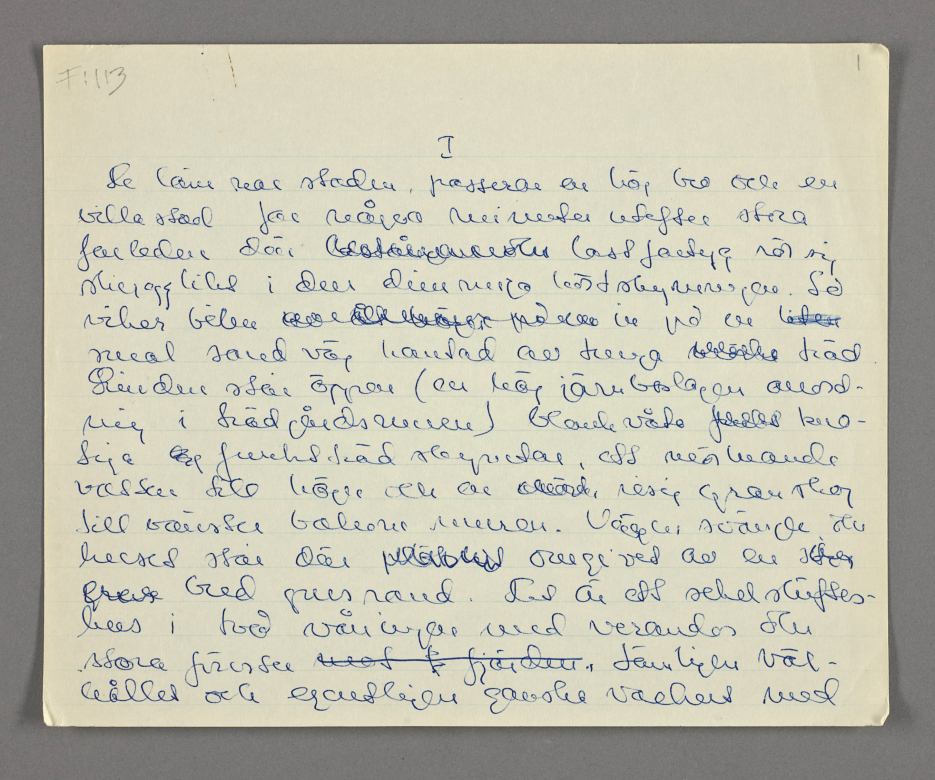 F:113
1
I
De lämnar staden, passerar en hög bro och en
villastad far några minuter utefter stora
farleden där lastfartyg rör sig
skugglikt i den dimmiga höstskymningen. Så
viker bilen in på en
smal sandväg kantad av tunga träd
Grinden står öppen (en hög järnbeslagen anord-
ning i trädgårdsmuren) blank våta kno-
tiga fruktträd skymtar, ett mörknande
vatten till höger och en resig granskog
till vänster bakom muren. Vägen svänger och
huset står där omgivet av en
bred grusrand. Det är ett sekelskiftes-
hus i två våningar med verandor och
stora fönster mot fjärden. Tämligen väl-
hållet och egentligen ganska vackert med